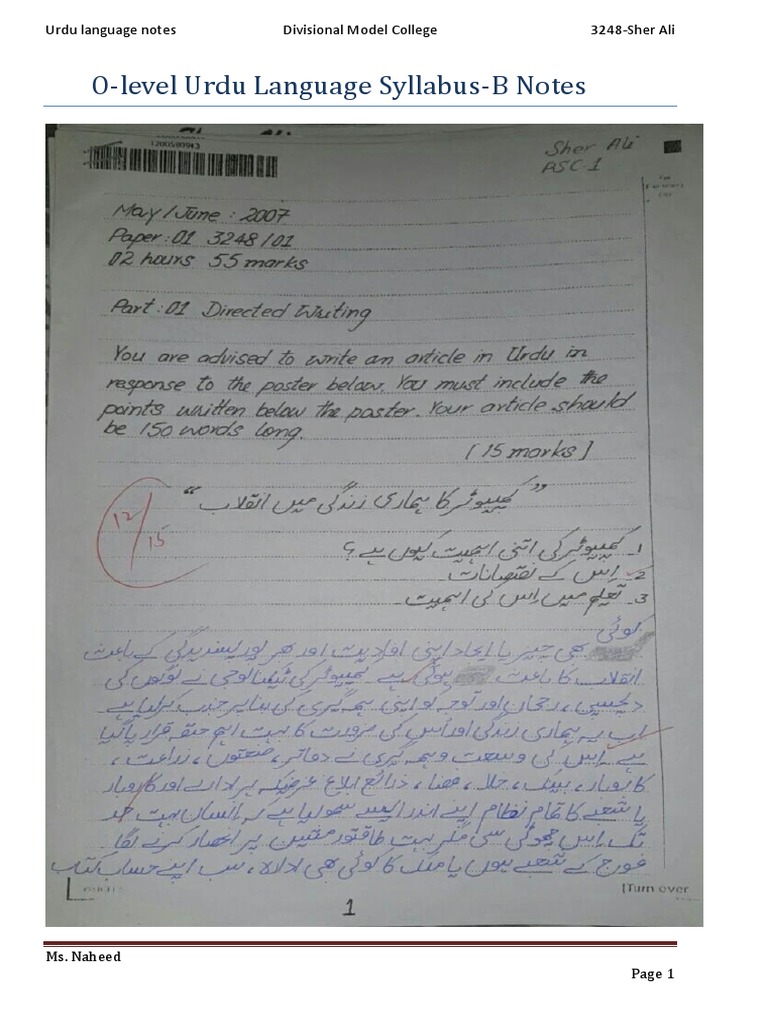 Urdu language notes Divisional Model College 3248-Sher Ali
O-level Urdu Language Syllabus-B Notes
Sher Ali
ASC-1
May/June : 2007
Paper:01 3248/01
02 hours 55 marks
Part:01 Directed Writing
You are advised to write an article in Urdu in
response to the poster below. You must include the
points written below the poster. Your article should
be 150 words long.
[15 marks]
"کمپیوٹر کا ہماری زندگی میں انقلاب"
12/15
1۔ کمپیوٹر کی اتنی اہمیت کیوں ہے؟
2۔ اِس کے نقصانات۔
3۔ تعلیم میں اِس کی اہمیت۔
کوئی
بھی چیز یا ایجاد اپنی افادیت اور بھرپور پسندیدگی کے باعث
انقلاب کا باعث ہوتی ہے۔ کمپیوٹر کی ٹیکنالوجی نے لوگوں کی
دلچسپی، رجحان اور توجہ کو اپنی ہمہ گیری کی بنا پر جذب کرلیا ہے
اب یہ ہماری زندگی اور اُس کی ضرورت کا بہت اہم حصّہ قرار پا گیا
ہے۔ اِس کی وسعت و ہمہ گیری نے دفاتر، صنعتوں، زراعت،
کاروبار، بینک، خلا، فضا، ذرائع ابلاغ غرضیکہ ہر ادارے اور کاروبار
یا شعبے کا تمام نظام اپنے اندر ایسے سمولیا ہے کہ انسان بہت حد
تک اِس چھوٹی سی مگر بہت طاقتور مشین پر انحصار کرنے لگا
فوج کے شعبے ہوں یا ملک کا کوئی بھی ادارہ، سب اپنے حساب کتاب
[Turn over
1
Ms. Naheed
Page 1